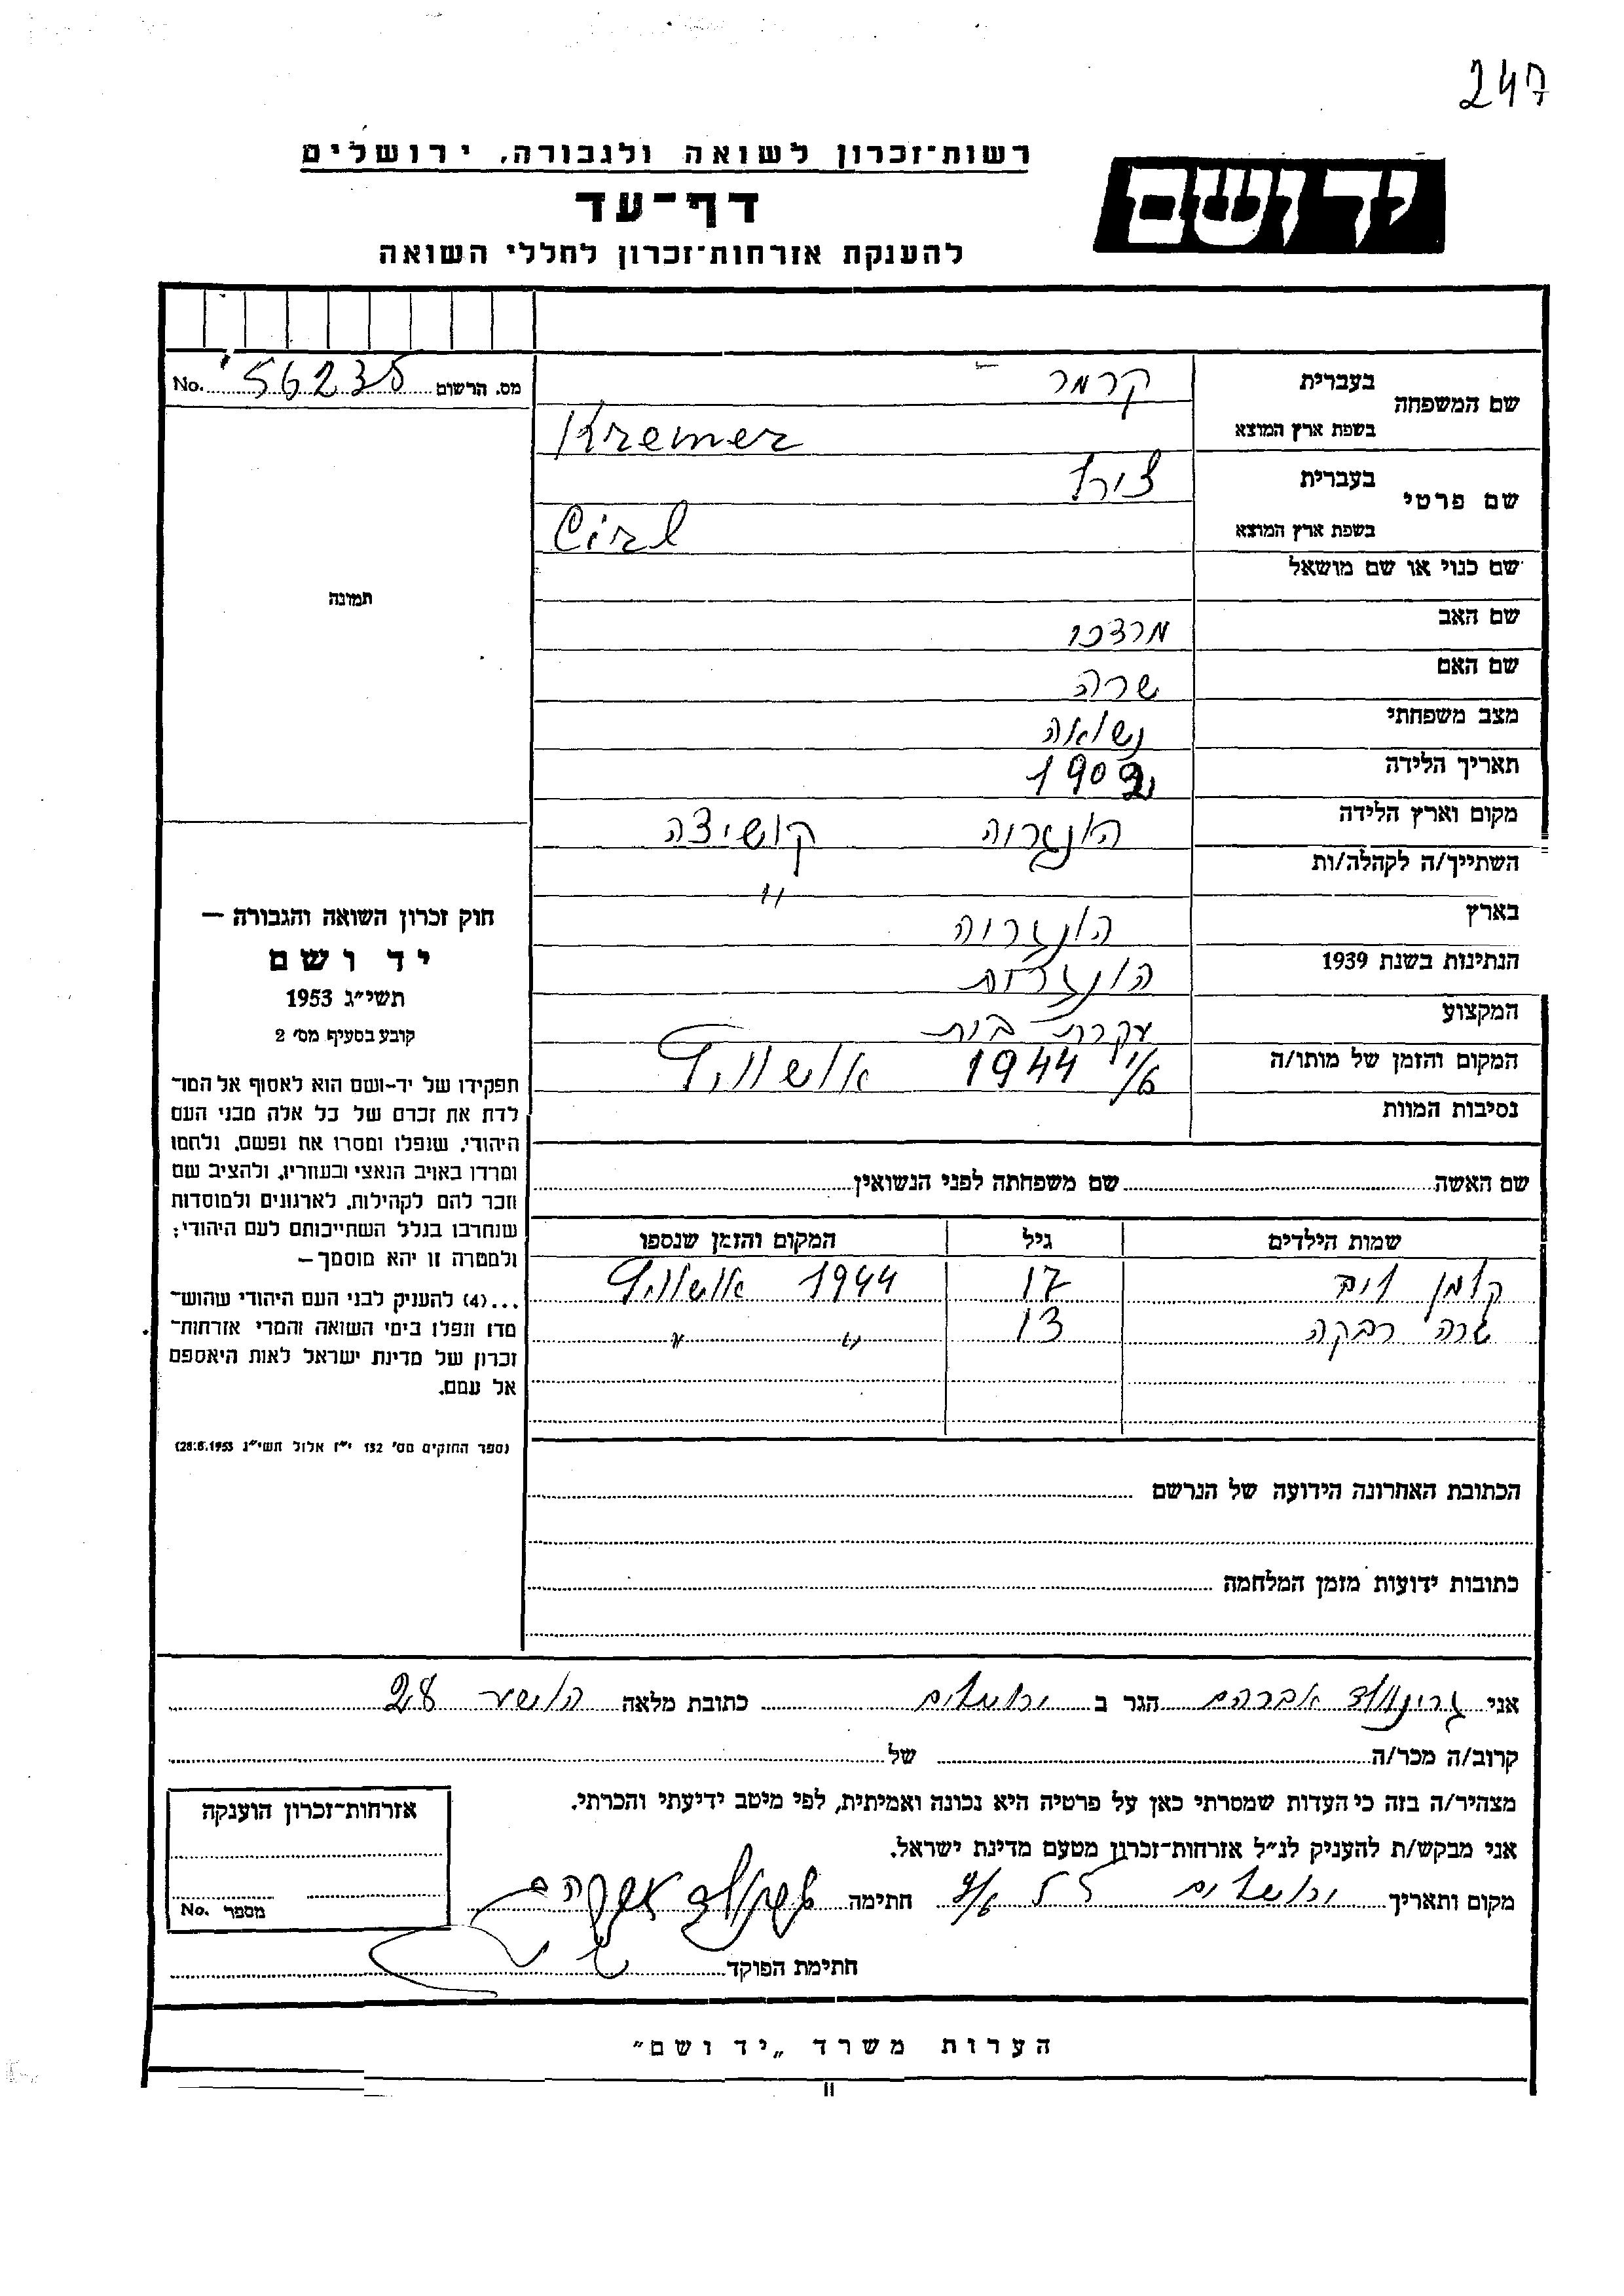 247
רשות־זכרון לשואה ולגבורה, ירושלים
יד ושם
דף־עד
להענקת אזרחות־זכרון לחללי השואה
מס. הרשום 56235 No.
שם המשפחה
בעברית קרמר
בשפת ארץ המוצא Kremer
שם פרטי
בעברית צירל
בשפת ארץ המוצא Cirl
שם כנוי או שם מושאל
שם האב מרדכי
שם האם שרה
מצב משפחתי נשואה
תאריך הלידה
מקום וארץ הלידה הונגריה קושיצה
השתייך/ה לקהלה/ות "
בארץ הונגריה
הנתינות בשנת 1939 הונגרית
המקצוע עקרת בית
המקום והזמן של מותו/ה 1944 אושויץ
נסיבות המוות
תמונה
חוק זכרון השואה והגבורה —
יד ושם
תשי״ג 1953
קובע בסעיף מס׳ 2
תפקידו של יד-ושם הוא לאסוף אל המו־
לדת את זכרם של כל אלה מבני העם
היהודי, שנפלו ומסרו את נפשם, נלחמו
ומרדו באויב הנאצי ובעוזריו, ולהציב שם
וזכר להם לקהילות, לארגונים ולמוסדות
שנחרבו בגלל השתייכותם לעם היהודי;
ולמטרה זו יהא מוסמך —
...(4) להעניק לבני העם היהודי שהוש־
מדו ונפלו בימי השואה והמרי אזרחות־
זכרון של מדינת ישראל לאות היאספם
אל עמם.
(ספר החוקים מס׳ 132 י״ז אלול תשי״ג 28.8.1953)
שם האשה שם משפחתה לפני הנשואין
שמות הילדים גיל המקום והזמן שנספו
קלמן 17 1944 אושויץ
שרה רבקה 13 " "
הכתובת האחרונה הידועה של הנרשם
כתובות ידועות מזמן המלחמה
אני גרינוולד אברהם הגר ב ירושלים כתובת מלאה הושע 28
קרוב/ה מכר/ה של
מצהיר/ה בזה כי העדות שמסרתי כאן על פרטיה היא נכונה ואמיתית, לפי מיטב ידיעתי והכרתי.
אני מבקש/ת להעניק לנ״ל אזרחות־זכרון מטעם מדינת ישראל.
מקום ותאריך ירושלים חתימה
חתימת הפוקד
אזרחות־זכרון הוענקה
מספר No.
הערות משרד „יד ושם״